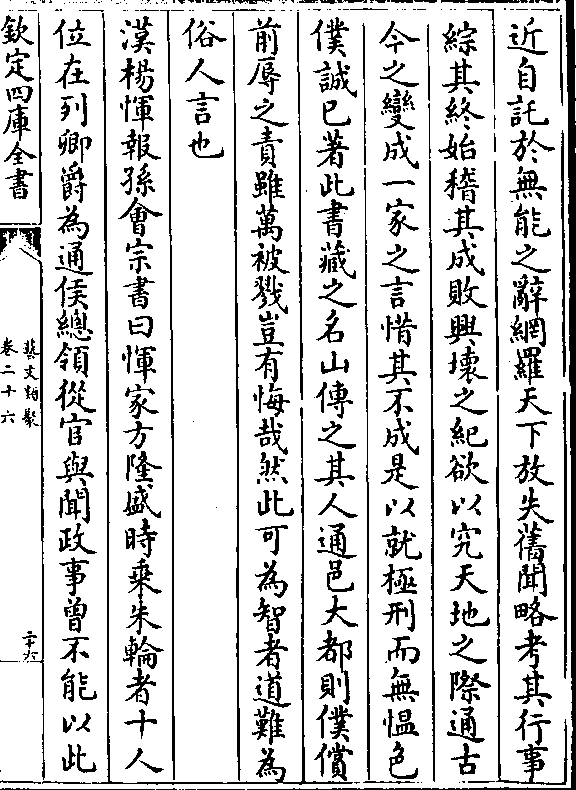 近自託於無能之辭網羅天下放失舊聞略考其行事
綜其終始稽其成敗興壞之紀欲以究天地之際通古
今之變成一家之言惜其不成是以就極刑而無愠色
僕誠已著此書藏之名山傳之其人通邑大都則僕償
前辱之責雖萬被戮豈有悔哉然此可為智者道難為
俗人言也
漢楊惲報孫會宗書曰惲家方隆盛時乘朱輪者十人
位在列卿爵為通侯總領從官與聞政事曾不能以此
欽定四庫全書
藝文類聚
卷二十六
二十六